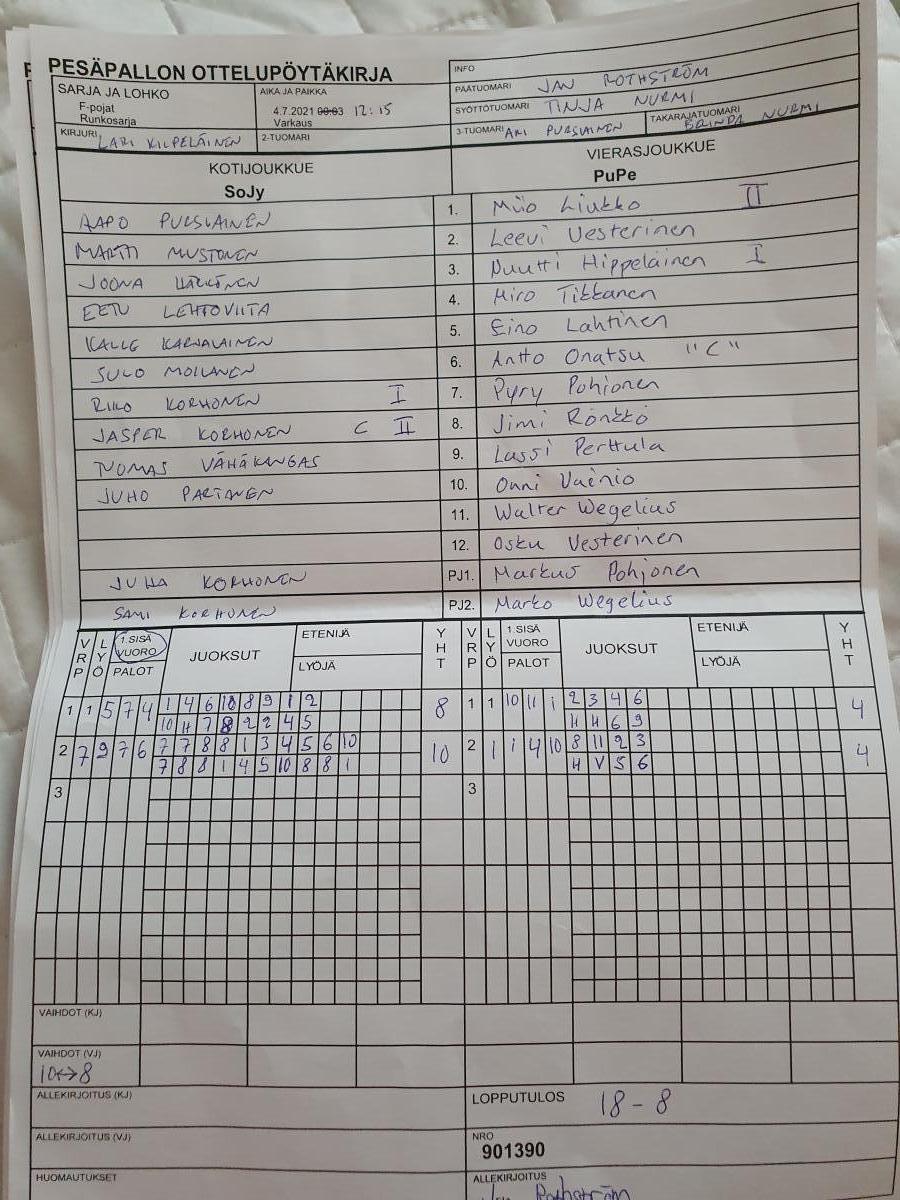 PESÄPALLON OTTELUPÖYTÄKIRJA
SARJA JA LOHKO
F-pojat
Runkosarja
AIKA JA PAIKKA
4.7.2021 00:03 12:15
Varkaus
KIRJURI LARI KILPELÄINEN
2-TUOMARI
INFO
PÄÄTUOMARI JAN ROTHSTRÖM
SYÖTTÖTUOMARI TINJA NURMI
3-TUOMARI ARI PURSIAINEN
TAKARAJATUOMARI NURMI
KOTIJOUKKUE
SoJy
VIERASJOUKKUE
PuPe
AAPO PURSIAINEN 1. Miio Liukko II
MARTTI MUSTONEN 2. Leevi Vesterinen
JOONA 3. Nuutti Hippeläinen I
EETU LEHTOVIITA 4. Miro Tikkanen
KALLE KARJALAINEN 5. Eino Lahtinen
SULO MOILANEN 6. Antto Onatsu "C"
RIKO KORHONEN I 7. Pyry Pohjonen
JASPER KORHONEN C II 8. Jimi Rönkkö
TUOMAS VÄHÄKANGAS 9. Lassi Perttula
JUHO PARTANEN 10. Onni Vainio
11. Walter Wegelius
12. Osku Vesterinen
JUHA KORHONEN PJ1. Markus Pohjonen
SAMI KORHONEN PJ2. Marko Wegelius
VRP LYÖ 1.SISÄ VUORO PALOT JUOKSUT ETENIJÄ LYÖJÄ YHT VRP LYÖ 1.SISÄ VUORO PALOT JUOKSUT ETENIJÄ LYÖJÄ YHT
1 1 5 7 4 1 4 6 10 8 9 1 2 8 1 1 10 11 1 2 3 4 6 4
10 H 7 8 2 2 4 5 H H 6 9
2 7 9 7 6 7 7 8 8 1 3 4 5 6 10 10 2 1 1 4 10 8 11 2 3 4
7 8 8 1 4 5 10 8 8 1 H V 5 6
3 3
VAIHDOT (KJ)
VAIHDOT (VJ)
10↔8
ALLEKIRJOITUS (KJ)
LOPPUTULOS 18-8
ALLEKIRJOITUS (VJ)
NRO
901390
HUOMAUTUKSET
ALLEKIRJOITUS
Jan Rothström